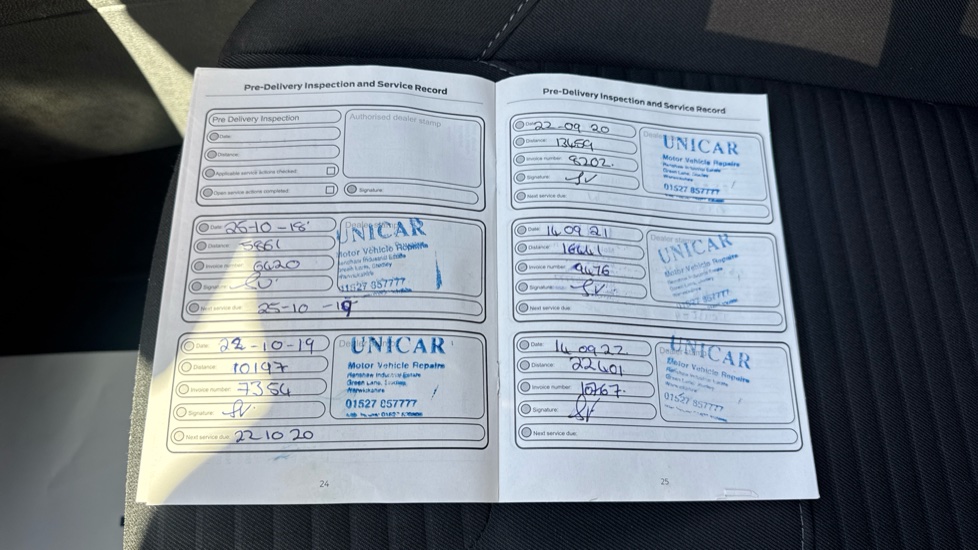 Pre-Delivery Inspection and Service Record
Pre Delivery Inspection
Authorised dealer stamp
Date:
Distance:
Applicable service actions checked:
Open service actions completed:
Signature:
Date: 25-10-18
Distance: 5861
Invoice number: 6420
Signature:
UNICAR
Motor Vehicle Repairs
Next service due: 25-10-19
Date: 22-10-19
Distance: 10197
Invoice number: 7354
Signature:
UNICAR
Motor Vehicle Repairs
Green Lane,
Warwickshire
01527 857777
Next service due: 22 10 20
24
Pre-Delivery Inspection and Service Record
Date: 22-09 20
Distance: 13459
Invoice number: 8202
Signature:
UNICAR
Motor Vehicle Repairs
Green Lane, Studley
Warwickshire
01527 857777
Next service due:
Date: 14 09 21
Distance:
Invoice number: 9476
Signature:
UNICAR
Motor Vehicle Repairs
Next service due:
Date: 14 09 22
Distance: 22401
Invoice number:
Signature:
UNICAR
Motor Vehicle Repairs
01527 857777
Next service due:
25